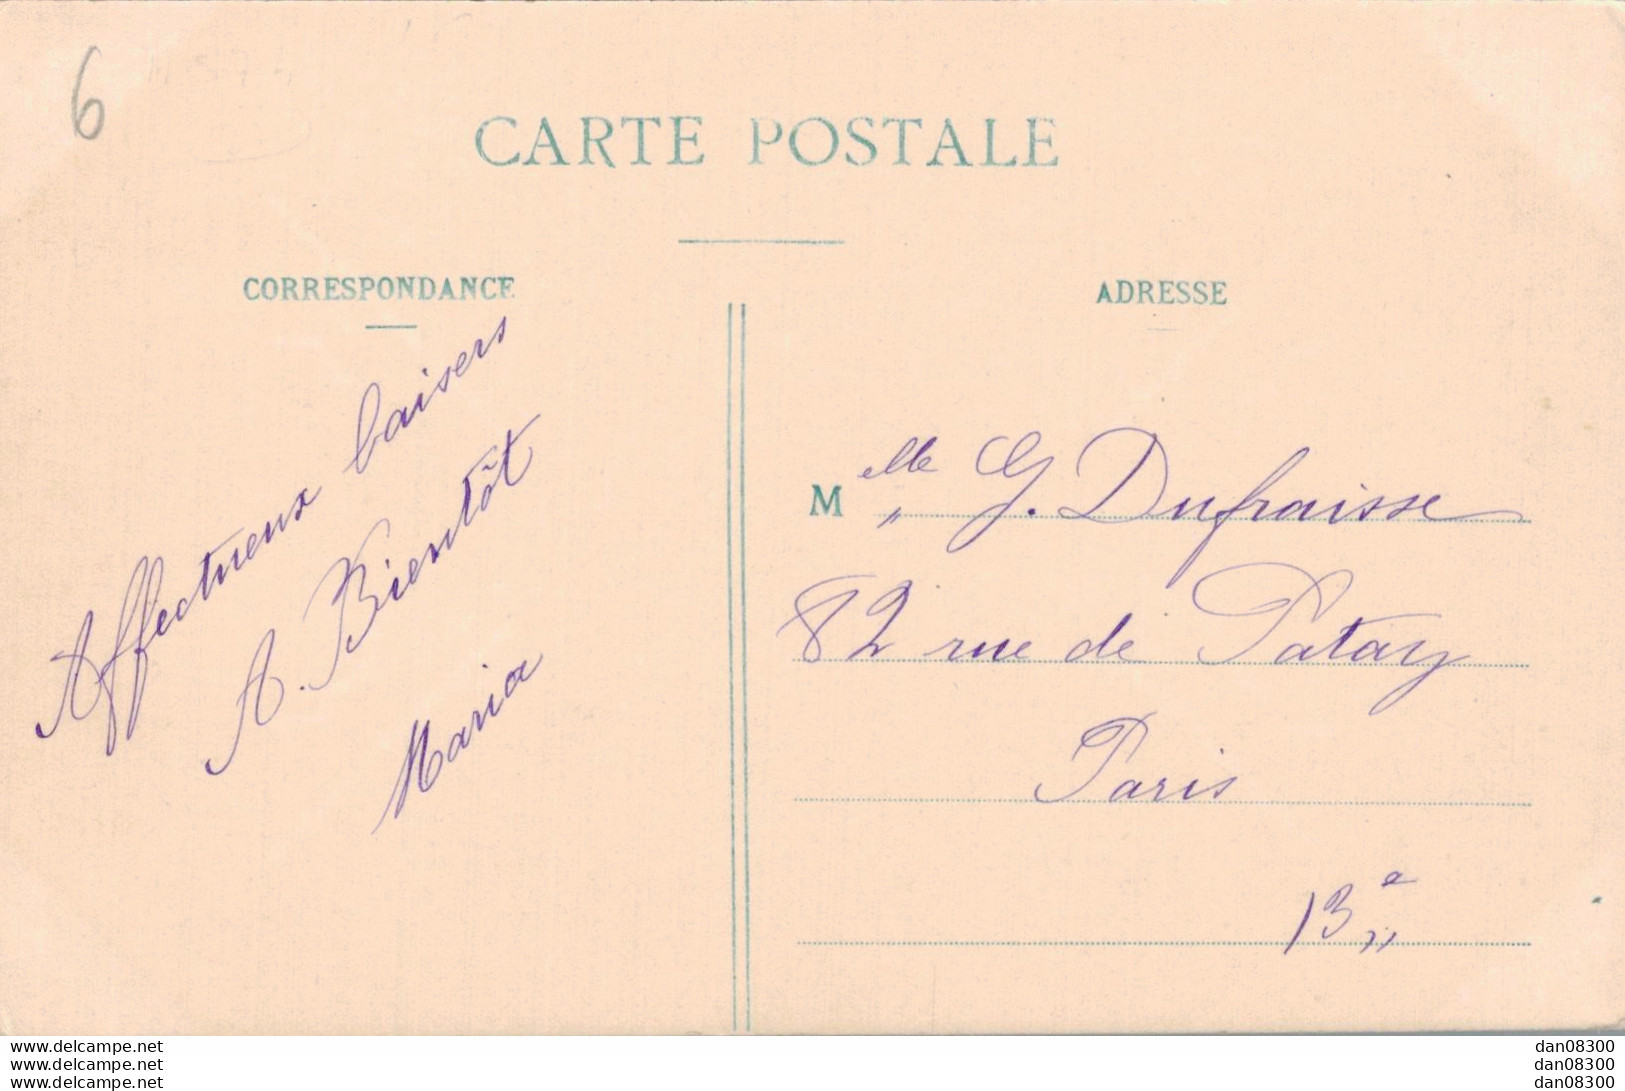 6
CARTE POSTALE
CORRESPONDANCE
Affectueux baisers
A. Bientôt
Maria
ADRESSE
Melle G. Dufraisse
82 rue de Patay
Paris
13e
www.delcampe.net
www.delcampe.net
www.delcampe.net
dan08300
dan08300
dan08300